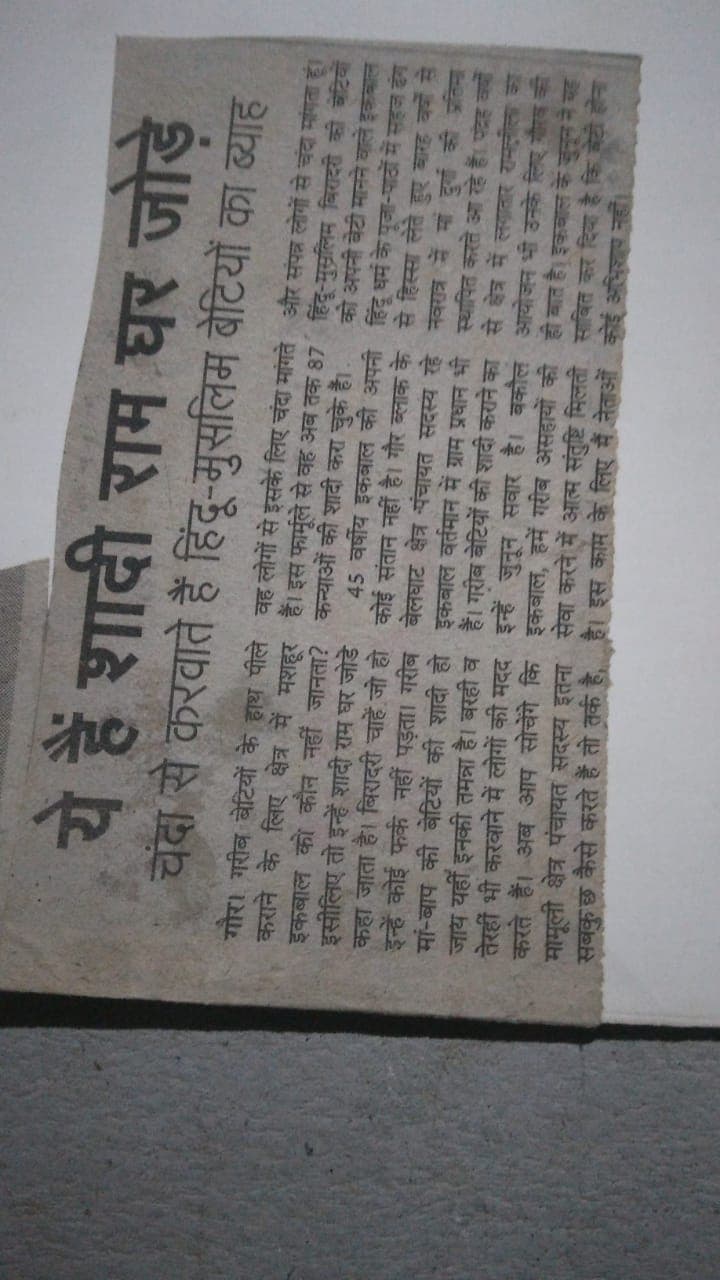 ये हैं शादी राम घर जोड़े
चंदा से करवाते हैं हिंदू-मुसलिम बेटियों का ब्याह
गौर। गरीब बेटियों के हाथ पीले
कराने के लिए क्षेत्र में मशहूर
इकबाल को कौन नहीं जानता?
इसीलिए तो इन्हें शादी राम घर जोडे
कहा जाता है। बिरादरी चाहें जो हो
इन्हें कोई फर्क नहीं पड़ता। गरीब
मां-बाप की बेटियों की शादी हो
जाय यहीं इनकी तमन्ना है। बरही व
तेरहीं भी करवाने में लोगों की मदद
करते हैं। अब आप सोचेंगे कि
मामूली क्षेत्र पंचायत सदस्य इतना
सबकुछ कैसे करते हैं तो तर्क है,
वह लोगों से इसके लिए चंदा मांगते
हैं। इस फार्मूले से वह अब तक 87
कन्याओं की शादी करा चुके हैं।
45 वर्षीय इकबाल की अपनी
कोई संतान नहीं है। गौर ब्लाक के
बेलघाट क्षेत्र पंचायत सदस्य रहे
इकबाल वर्तमान में ग्राम प्रधान भी
हैं। गरीब बेटियों की शादी कराने का
इन्हें जुनून सवार है। बकौल
इकबाल, हमें गरीब असहायों की
सेवा करने में आत्म संतुष्टि मिलती
है। इस काम के लिए मैं नेताओं
और संपन्न लोगों से चंदा मांगता हूं।
हिंदू-मुसलिम बिरादरी की बेटियों
को अपनी बेटी मानने वाले इकबाल
हिंदू धर्म के पूजा-पाठों में सहज ढंग
से हिस्सा लेते हुए बारह वर्षों से
नवरात्र में मां दुर्गा की प्रतिमा
स्थापित करते आ रहे हैं। पंद्रह वर्षों
से क्षेत्र में लगातार रामलीला का
आयोजन भी उनके लिए गौरव की
ही बात है। इकबाल के जुनून ने यह
साबित कर दिया है कि बेटी होना
कोई अभिशाप नहीं।